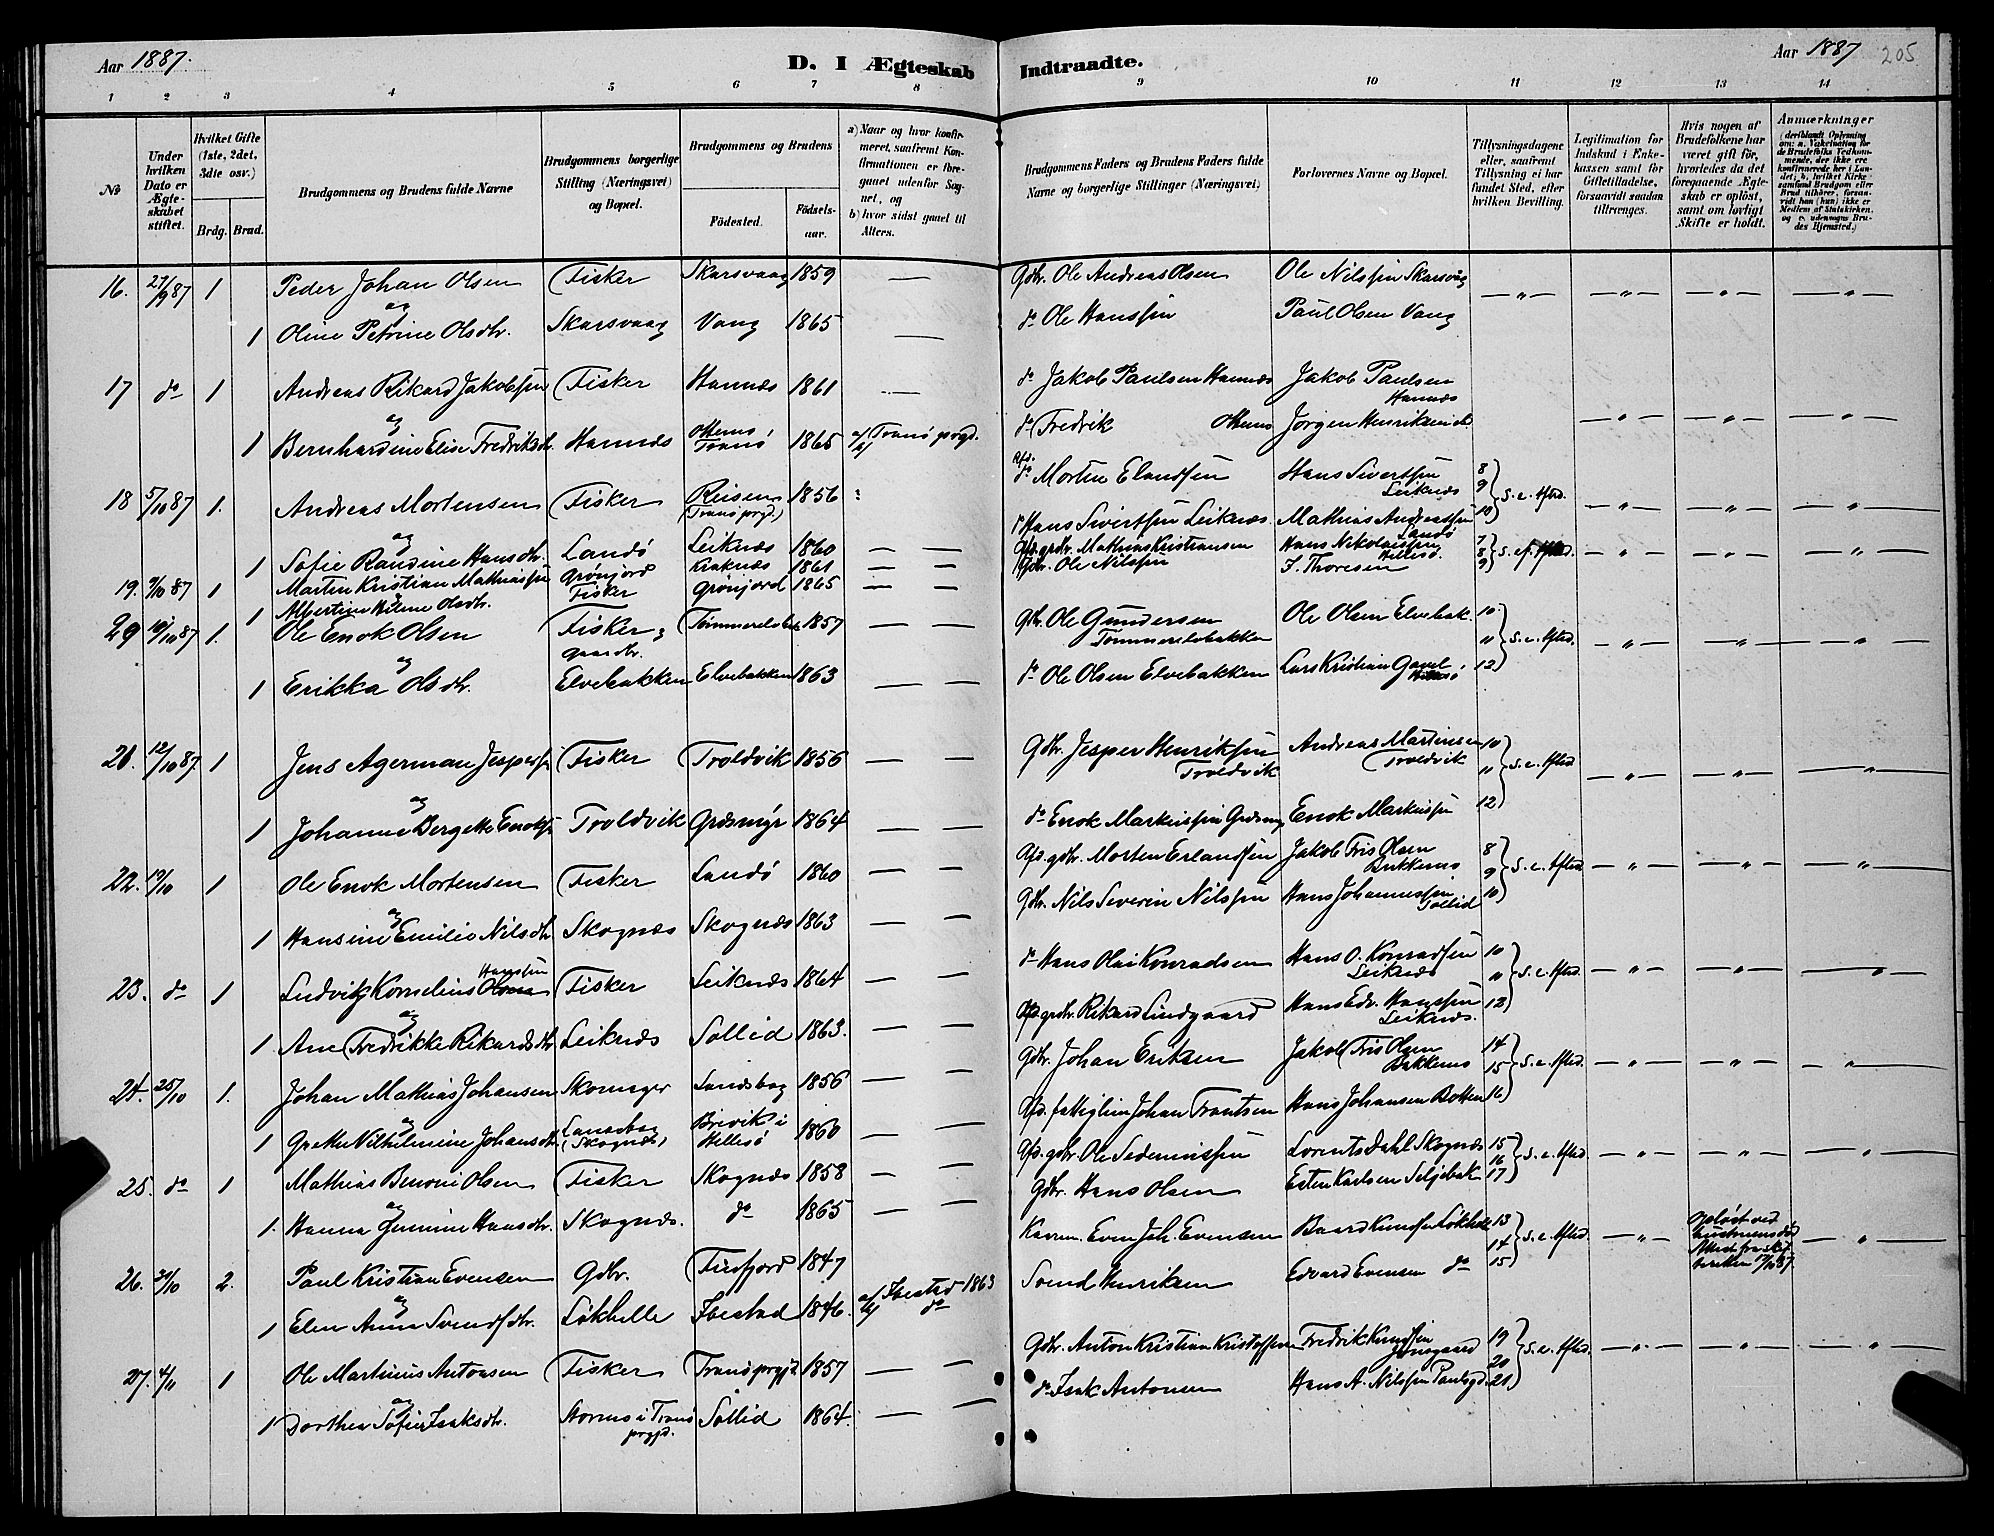 Aar 1887. D. I Ægteskab Indtraadte. Aar 1887 205
1 2 3 4 5 6 7 8 9 10 11 12 13 14
No
Under hvilken Dato er Ægteskabet stiftet.
Hvilket Gifte (1ste, 2det, 3die osv.)
Brdg. Brud.
Brudgommens og Brudens fulde Navne
Brudgommens borgerlige Stilling (Næringsvei) og Bopæl.
Brudgommens og Brudens
Fødested. Fødselsaar.
a) Naar og hvor konfirmeret, saafremt Konfirmationen er foregaaet udenfor Sognet, og
b) hvor sidst gaaet til Alters.
Brudgommens Faders og Brudens Faders fulde Navne og borgerlige Stillinger (Næringsvei)
Forlovernes Navne og Bopæl.
Tillysningsdagene eller, saafremt Tillysning ei har fundet Sted, efter hvilken Bevilling.
Legitimation for Indskud i Enkekassen samt for Giftetilladelse, forsaavidt saadan tiltrænges.
Hvis nogen af Brudefolkene har været gift før, hvorledes da det foregaaende Ægteskab er opløst, samt om lovligt Skifte er holdt.
Anmærkninger
16. 27/9 87 1 Peder Johan Olsen Fisker Skarsvaag 1859 — Gdbr. Ole Andreas Olsen Ole Nilssen Skarsvåg — " — — " — — " — — " —
og
1 Oline Petrine Olsdtr. Skarsvaag Vang 1865 — do Ole Hanssen Paul Olsen Vang
17 do 1 Andreas Rikard Jakobssen Fisker Hannæs 1861 — do Jakob Paulsen Hannæs Jakob Paulsen Hannæs
og
1 Bernhardine Elise Fredriksdtr. Hannæs Tranö 1865 a/b) Tranö prgd. do Fredrik Jörgen Henriksen do — " — — " — — " —
18 5/10 87 1. Andreas Mortensen Fisker Reisen (Tranö prgd.) 1856 Afd. do Morten Elandssen Hans Sivertssen Leiknæs 8 9 10 S. e. Afsd. — " — — " — — " —
og
1 Sofie Randine Hansdtr. Landö Leiknæs 1860 — — do Hans Sivertssen Leiknæs Mathias Andreassen Landö
19. 9/10 87 1 Martin Kristian Mathiassen Grönjord Kraknæs 1861 — — Afd. grdbr. Mathias Kristiansen Hans Nikolaissen Hillesö 7 8 9 S. e. — " — — " — — " —
1 Albertine Olsdtr. Fisker Grönjord 1865 — — Gdbr. Ole Nilssen J. Thoresen
20 10/10 87 1. Ole Enok Olsen Fisker gaardbr. 1857 — — Gdbr. Ole Gundersen Tömmerelvbakken Ole Olsen Elvebak. 10 " 12 S. e. Afsd. — " — — " — — " —
og
1 Erikka Olsdtr. Elvebakken Elvebakken 1863 — — do Ole Olsen Elvebakken Lars Kristian Gavel
21. 12/10 87 1 Jens Agerman Jesperss. Fisker Troldvik 1856 — — Gdbr. Jesper Henrikssen Troldvik Andreas Martinsen Troldvik 10 " 12 S. e. Afsd — " — — " — — " —
og
1 Johanne Bergette Enoks. Troldvik Græsmyr 1864 — — do Enok Markussen Græsmyr Enok Markussen
22. 19/10 1 Ole Enok Mortensen Fisker Landö 1860 — — Afd. gdbr. Morten Erlandssen Jakob Fris Olsen Bakkenes 8 9 10 S. e. Afsed — " — — " — — " —
og
1 Hansine Emilie Nilsdtr. Skognæs Skognæs 1863 — — Gdbr. Nils Severin Nilssen Hans Johannessen Sollid
23. do 1 Ludvig Kornelius Hanssen Fisker Leiknæs 1864 — — do Hans Olai Konradsen Hans O. Konradssen Leiknæs 10 " 12 S. e. Afsd. — " — — " — — " —
og
1 Ane Fredrikke Rikardsdtr. Leiknæs Sollid 1863. — — Afd. grdbr. Rikard Lindgaard Hans Edv. Hanssen Leiknæs.
24. 25/10 1. Johan Mathias Johansen Skomager Landsbag 1856 — — Gdbr. Johan Eriksen Jakob Fris Olsen Bakkenes 14 15 16 S. e. Afsd. — " — — " — — " —
og
1 Grethe Vilhelmine Johansdtr. (Skognæs) Brevik i Hillesö 1860 — — Afd. fattiglem Johan Frantsen Hans Johansen Botten
25. do 1 Mathias Benoni Olsen Fisker Skognæs 1858 — — Afd. gdbr. Ole Sedeniussen Lorents Dahl Skognæs 15 16 17 S. e. Afsd. — " — — " — — " —
og
1. Hanna Hansdtr. Skognæs. do 1865 — — Gdbr. Hans Olsen Esten Karlsen Seljebak
26. 30/10 2. Paul Kristian Evensen Gdbr. Finfjord 1847 Evens Joh. Evensen Baard Knudsen Lökhelle 13 14 15 S. e. Afsd. — " — opløst ved hustruens død Attest fra skifteretten 17/10 87. — " —
og
1 Elen Anna Svendsdtr. Lökhelle Ibestad 1846. a/b) Ibestad 1863 do Svend Henriksen Edvard Evensen do
27. 4/11 1 Ole Martinus Antonsen Fisker Tranö prgjd. 1857 — — Gdbr. Anton Kristian Kristoffersen Fredrik Knudsen 19 20 21 S. e. Afsd. — " — — " — — " —
og
1 Dorthea Sofie Isaksdtr. i Tranö prgjd. Sollid 1864. — — do Isak Antonsen Hans A. Nilssen